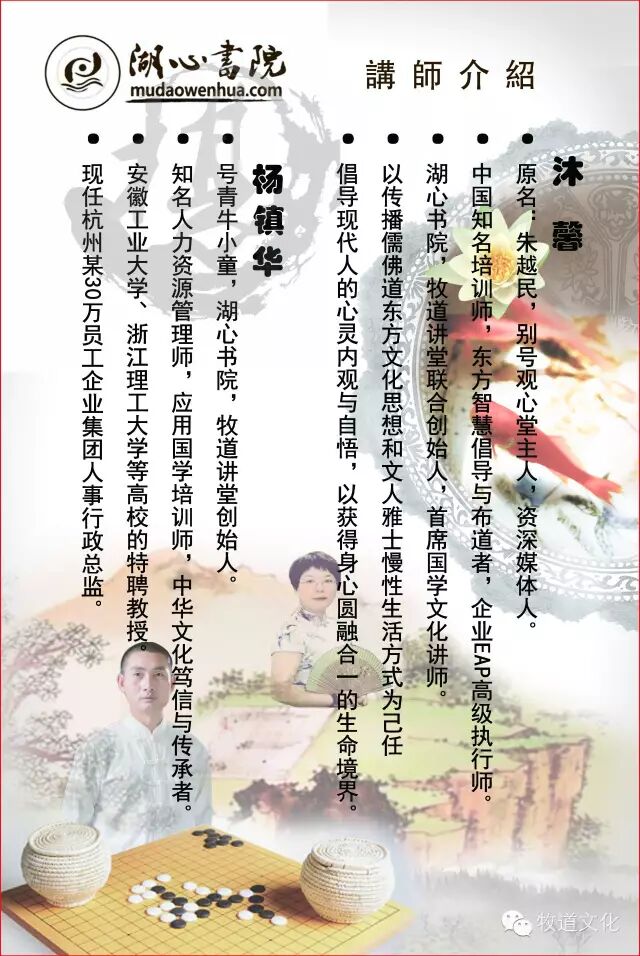 湖心書院
mudaowenhua.com
講師介紹
沐馨
• 原名：朱越民，别号观心堂主人，资深媒体人。
• 中国知名培训师，东方智慧倡导与布道者，企业EAP高级执行师。
• 湖心书院，牧道讲堂联合创始人，首席国学文化讲师。
• 以传播儒佛道东方文化思想和文人雅士慢性生活方式为己任
• 倡导现代人的心灵内观与自悟，以获得身心圆融合一的生命境界。
杨镇华
• 号青牛小童，湖心书院，牧道讲堂创始人。
• 知名人力资源管理师，应用国学培训师，中华文化笃信与传承者。
• 安徽工业大学、浙江理工大学等高校的特聘教授。
• 现任杭州某30万员工企业集团人事行政总监。
牧道文化